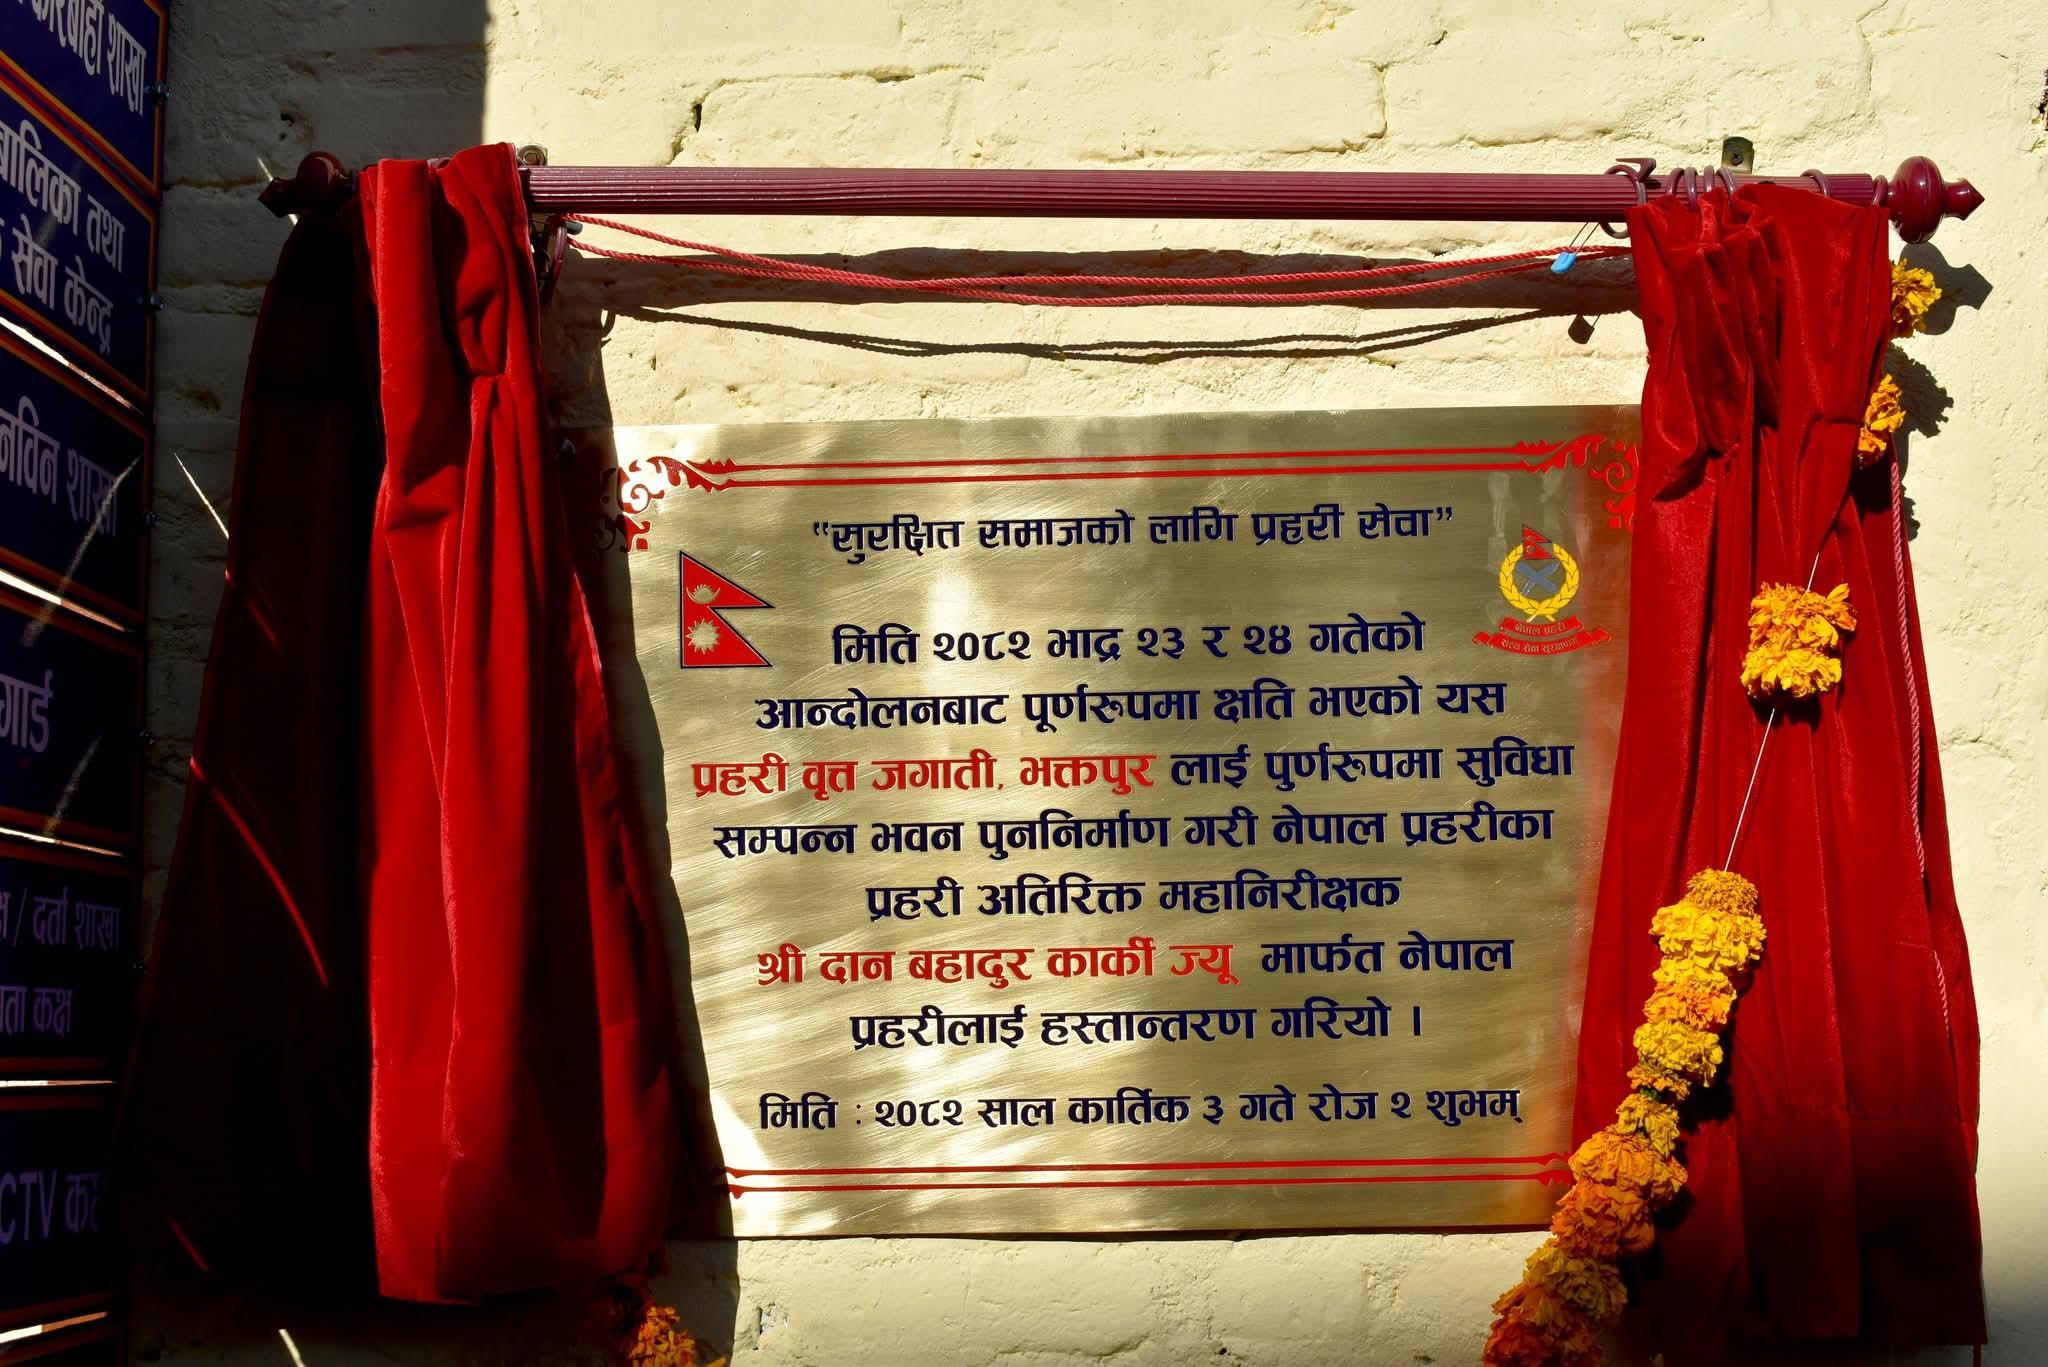 कारबाही शाखा
बालिका तथा
सेवा केन्द्र
शाखा
गार्ड
/ दर्ता शाखा
कक्ष
CTV कक्ष
“सुरक्षित समाजको लागि प्रहरी सेवा”
नेपाल प्रहरी
सत्य सेवा सुरक्षणम्
मिति २०८२ भाद्र २३ र २४ गतेको
आन्दोलनबाट पूर्णरुपमा क्षति भएको यस
प्रहरी वृत्त जगाती, भक्तपुर लाई पुर्णरुपमा सुविधा
सम्पन्न भवन पुननिर्माण गरी नेपाल प्रहरीका
प्रहरी अतिरिक्त महानिरीक्षक
श्री दान बहादुर कार्की ज्यू मार्फत नेपाल
प्रहरीलाई हस्तान्तरण गरियो ।
मिति : २०८२ साल कार्तिक ३ गते रोज २ शुभम्